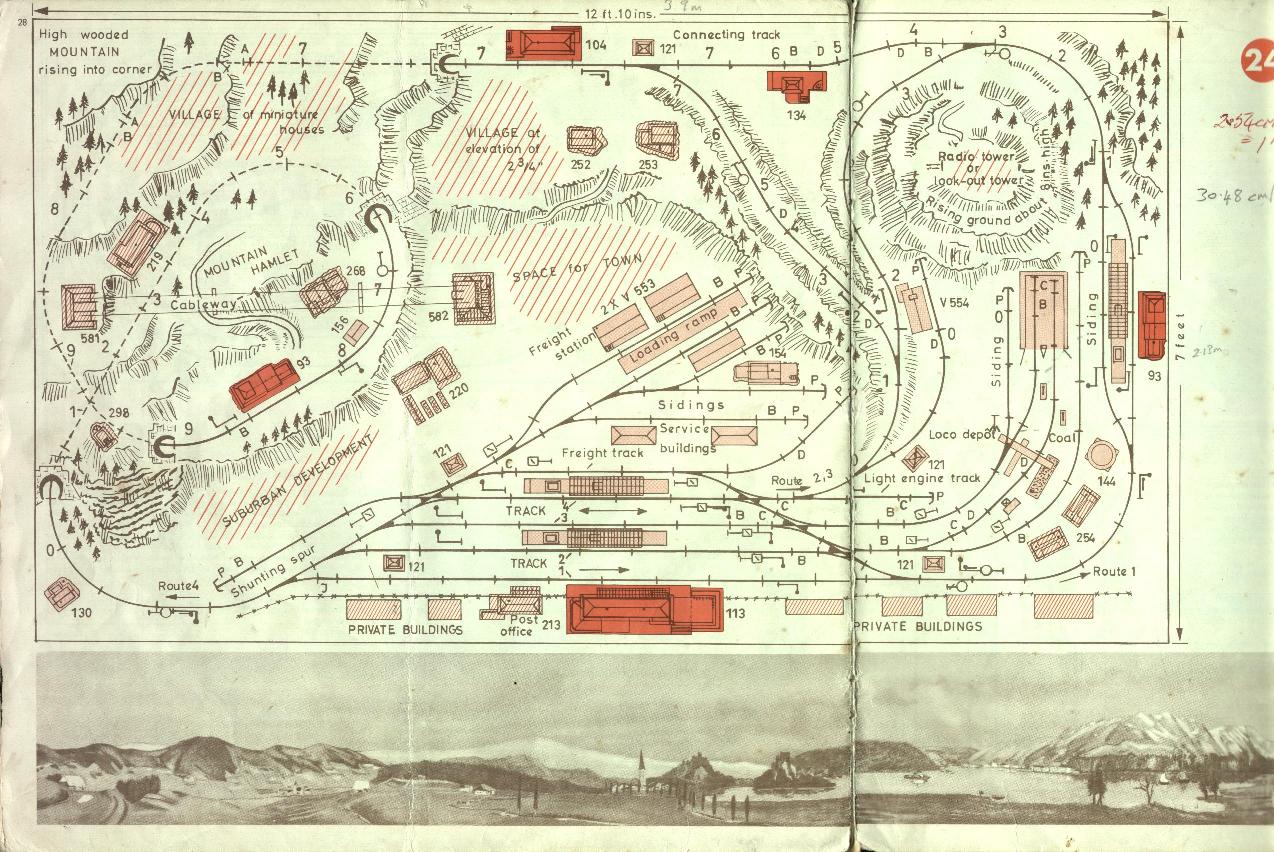 28
12 ft.10ins.
3 9m
High wooded
MOUNTAIN
rising into corner
A
7
B
VILLAGE of miniature
houses
A
B
7
104
121
Connecting track
7
6 B D 5
134
4
D B
3
2
24
2.54cm
= 1"
30.48 cm
VILLAGE at
elevation of
2 3/4"
252
253
7
6
5
D
4
3
3
Radio tower
or
look-out tower
8ins-high
Rising ground about
1
5
6
8
4
219
MOUNTAIN
HAMLET
268
3
Cableway
7
156
581
582
9
2
93
8
B
1
298
9
SPACE for TOWN
Freight
station
2 X V 553
Loading ramp
B P
B P
B P
154
220
2
P
V 554
2
D
0
D
1
P
0
Siding
C
B
0
Siding
93
7 feet
2.13m
P
Sidings
B P
Service
buildings
Freight track
D
P
121
C
SUBURBAN DEVELOPMENT
Route 2,3
Light engine track
121
Loco depot
Coal
144
254
TRACK 4
3
B C C
B C P
C D
B B
TRACK 2
1
B
121
121
P B
Shunting spur
0
130
Route4
Route 1
PRIVATE BUILDINGS
Post
office
213
113
PRIVATE BUILDINGS